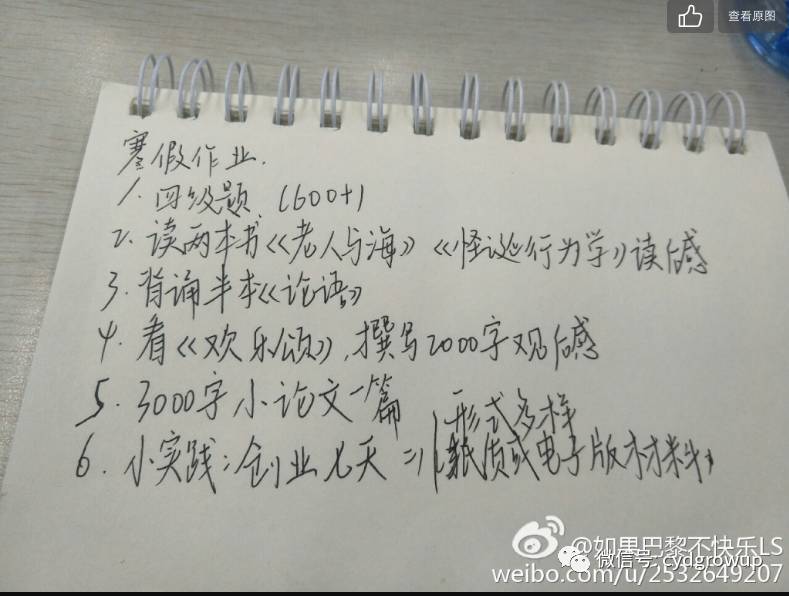 查看原图
寒假作业.
1. 四级题 (600+)
2. 读两本书《老人与海》《怪诞行为学》读后感
3. 背诵半本《论语》
4. 看《欢乐颂》,撰写2000字观后感
5. 3000字小论文一篇
形式多样
6. 小实践:创业七天 =》(纸质或电子版材料)
@如果巴黎不快乐LS
微信号: cydgrowup
weibo.com/u/2532649207